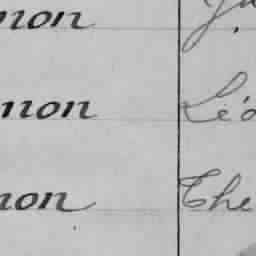 non Ju
non Léo
non The